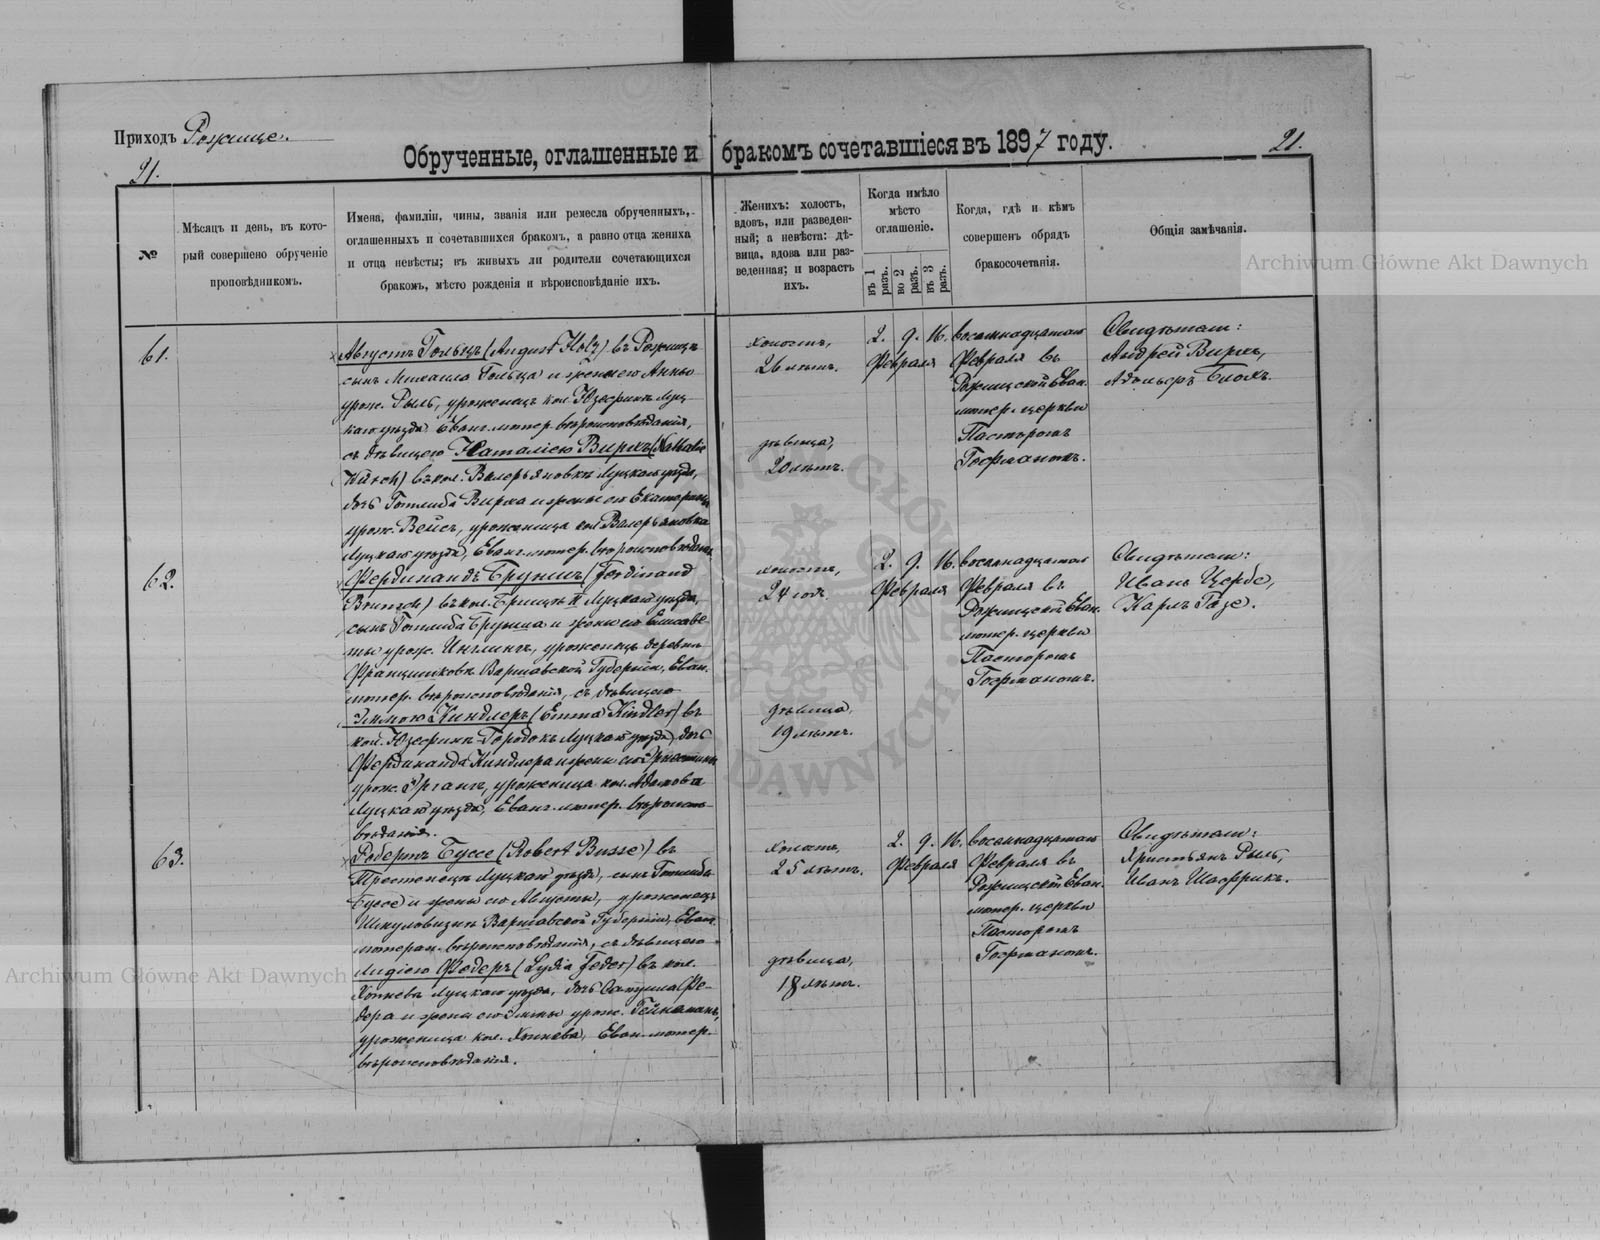 Приходъ Рожище.
21.
Обрученные, оглашенные и бракомъ сочетавшіеся въ 1897 году.
21.
№
Мѣсяцъ и день, въ кото-
рый совершено обрученіе
проповѣдникомъ.
Имена, фамиліи, чины, званія или ремесла обрученныхъ,
оглашенныхъ и сочетавшихся бракомъ, а равно отца жениха
и отца невѣсты; въ живыхъ ли родители сочетающихся
бракомъ, мѣсто рожденія и вѣроисповѣданіе ихъ.
Женихъ: холостъ,
вдовъ, или разведен-
ный; а невѣста: дѣ-
вица, вдова или раз-
веденная; и возрастъ
ихъ.
Когда имѣло
мѣсто
оглашеніе.
въ 1 разъ.
во 2 разъ.
въ 3 разъ.
Когда, гдѣ и кѣмъ
совершенъ обрядъ
бракосочетанія.
Общія замѣчанія.
61.
Августъ Гольцъ (August Holz) въ Рожищѣ
сынъ Михаила Гольца и жены его Анны
урож. Рыль, уроженецъ кол. Юзефинъ Луц-
каго уѣзда, Еванг. лютер. вѣроисповѣданія,
съ дѣвицею Наталіею Виркъ (Nathalie
Würch) въ кол. Валерьяновкѣ Луцкаго уѣзда,
дочь Готлиба Вирка и жены его Екатерины
урож. Вейсъ, уроженица кол. Валерьяновка
Луцкаго уѣзда, Еванг. лютер. вѣроисповѣданія
холостъ,
26 лѣтъ.
дѣвица,
20 лѣтъ.
2. 9. 16.
Февраля
восемнадцатаго
Февраля въ
Рожищской Еван.
лютер. церкви
Пасторомъ
Гофманомъ.
Свидѣтели:
Андрей Виркъ,
Адольфъ Блокъ.
62.
Фердинандъ Бруншъ (Ferdinand
Brunsch) въ кол. Брищъ II Луцкаго уѣзда,
сынъ Готлиба Брунша и жены его Елисаве-
ты урож. , уроженецъ деревни
Францишковъ Варшавской Губерніи, Еван.
лютер. вѣроисповѣданія, съ дѣвицею
Эммою Киндлеръ (Emma Kindler) въ
кол. Юзефинъ-Городокъ Луцкаго уѣзда, дочь
Фердинанда Киндлера и жены его
урож. , уроженица кол. Адамовка
Луцкаго уѣзда, Еванг. лютер. вѣроиспо-
вѣданія.
холостъ,
24 годъ.
дѣвица,
19 лѣтъ.
2. 9. 16.
Февраля
восемнадцатаго
Февраля въ
Рожищской Еван.
лютер. церкви
Пасторомъ
Гофманомъ.
Свидѣтели:
Иванъ Цербе,
Карлъ Газе.
63.
Робертъ Буссе (Robert Busse) въ
Луцкаго уѣзда, сынъ Готлиба
Буссе и жены его Августы, уроженецъ
Варшавской Губерніи, Еван.
лютеран. вѣроисповѣданія, съ дѣвицею
Лидіею Федеръ (Lydia Feder) въ кол.
Копнева Луцкаго уѣзда, дочь Самуила Фе-
дера и жены его Эммы урож. Гейнеманъ,
уроженица кол. Копнева, Еван. лютер.
вѣроисповѣданія.
холостъ,
25 лѣтъ.
дѣвица,
18 лѣтъ.
2. 9. 16.
Февраля
восемнадцатаго
Февраля въ
Рожищской Еван.
лютер. церкви
Пасторомъ
Гофманомъ.
Свидѣтели:
Христьянъ Рыль,
Иванъ Шаффрикъ.
Archiwum Główne Akt Dawnych
Archiwum Główne Akt Dawnych